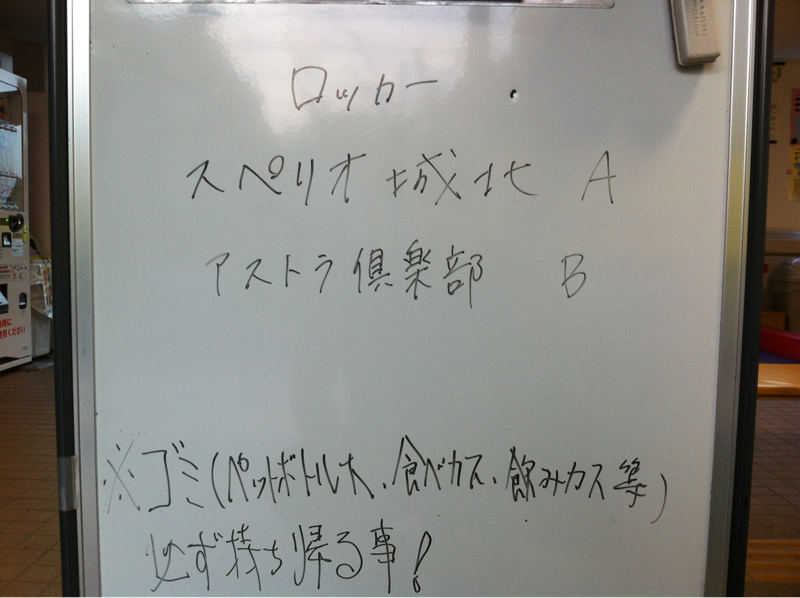 ロッカー
スペリオ城北 A
アストラ倶楽部 B
※ゴミ(ペットボトル大、食べカス、飲みカス等)
必ず持ち帰る事!